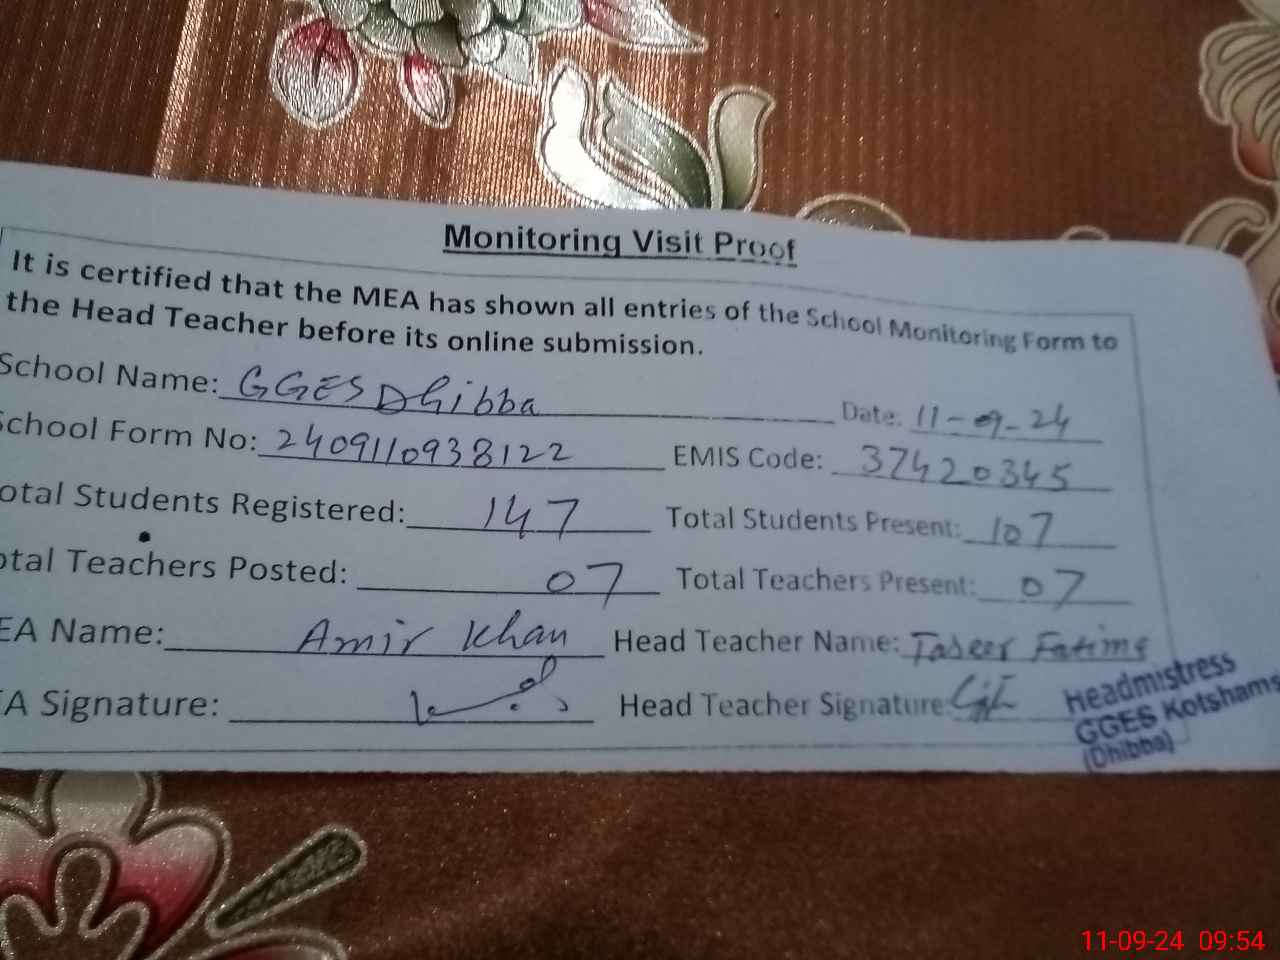 Monitoring Visit Proof
It is certified that the MEA has shown all entries of the School Monitoring Form to
the Head Teacher before its online submission.
School Name: GGES Dhibba Date: 11-09-24
School Form No: 2409110938122 EMIS Code: 37420345
otal Students Registered: 147 Total Students Present: 107
otal Teachers Posted: 07 Total Teachers Present: 07
EA Name: Amir Khan Head Teacher Name: Taseer Fatima
A Signature: Head Teacher Signature:
Headmistress
GGES Kotshams
(Dhibba)
11-09-24 09:54